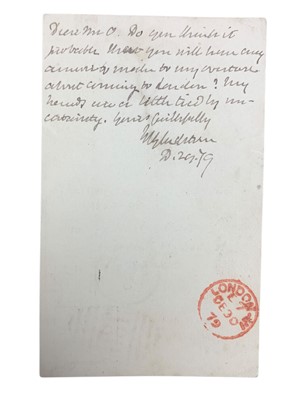 Dear Mr O. Do you think it
probable that you will have any
answer to my overture
about coming to London? My
hands are a little tied by un-
certainty. Yours faithfully
WEGladstone
D. 29. 79
LONDON
E 7
DE 30
79